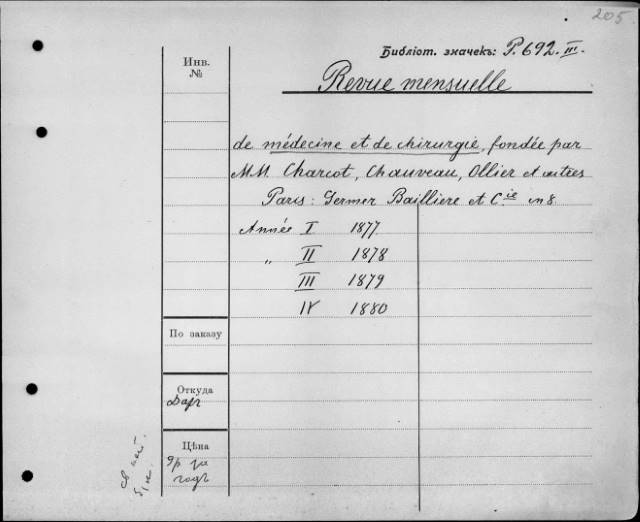 205
Библіот. значекъ: P.692.III.
Инв.
№
Revue mensuelle
de médecine et de chirurgie, fondée par
MM. Charcot, Chauveau, Ollier et autres
Paris: Germer Bailliere et Cie in 8
Année I 1877
„ II 1878
III 1879
IV 1880
По заказу
Откуда
Даръ
Цѣна
9р за
годъ